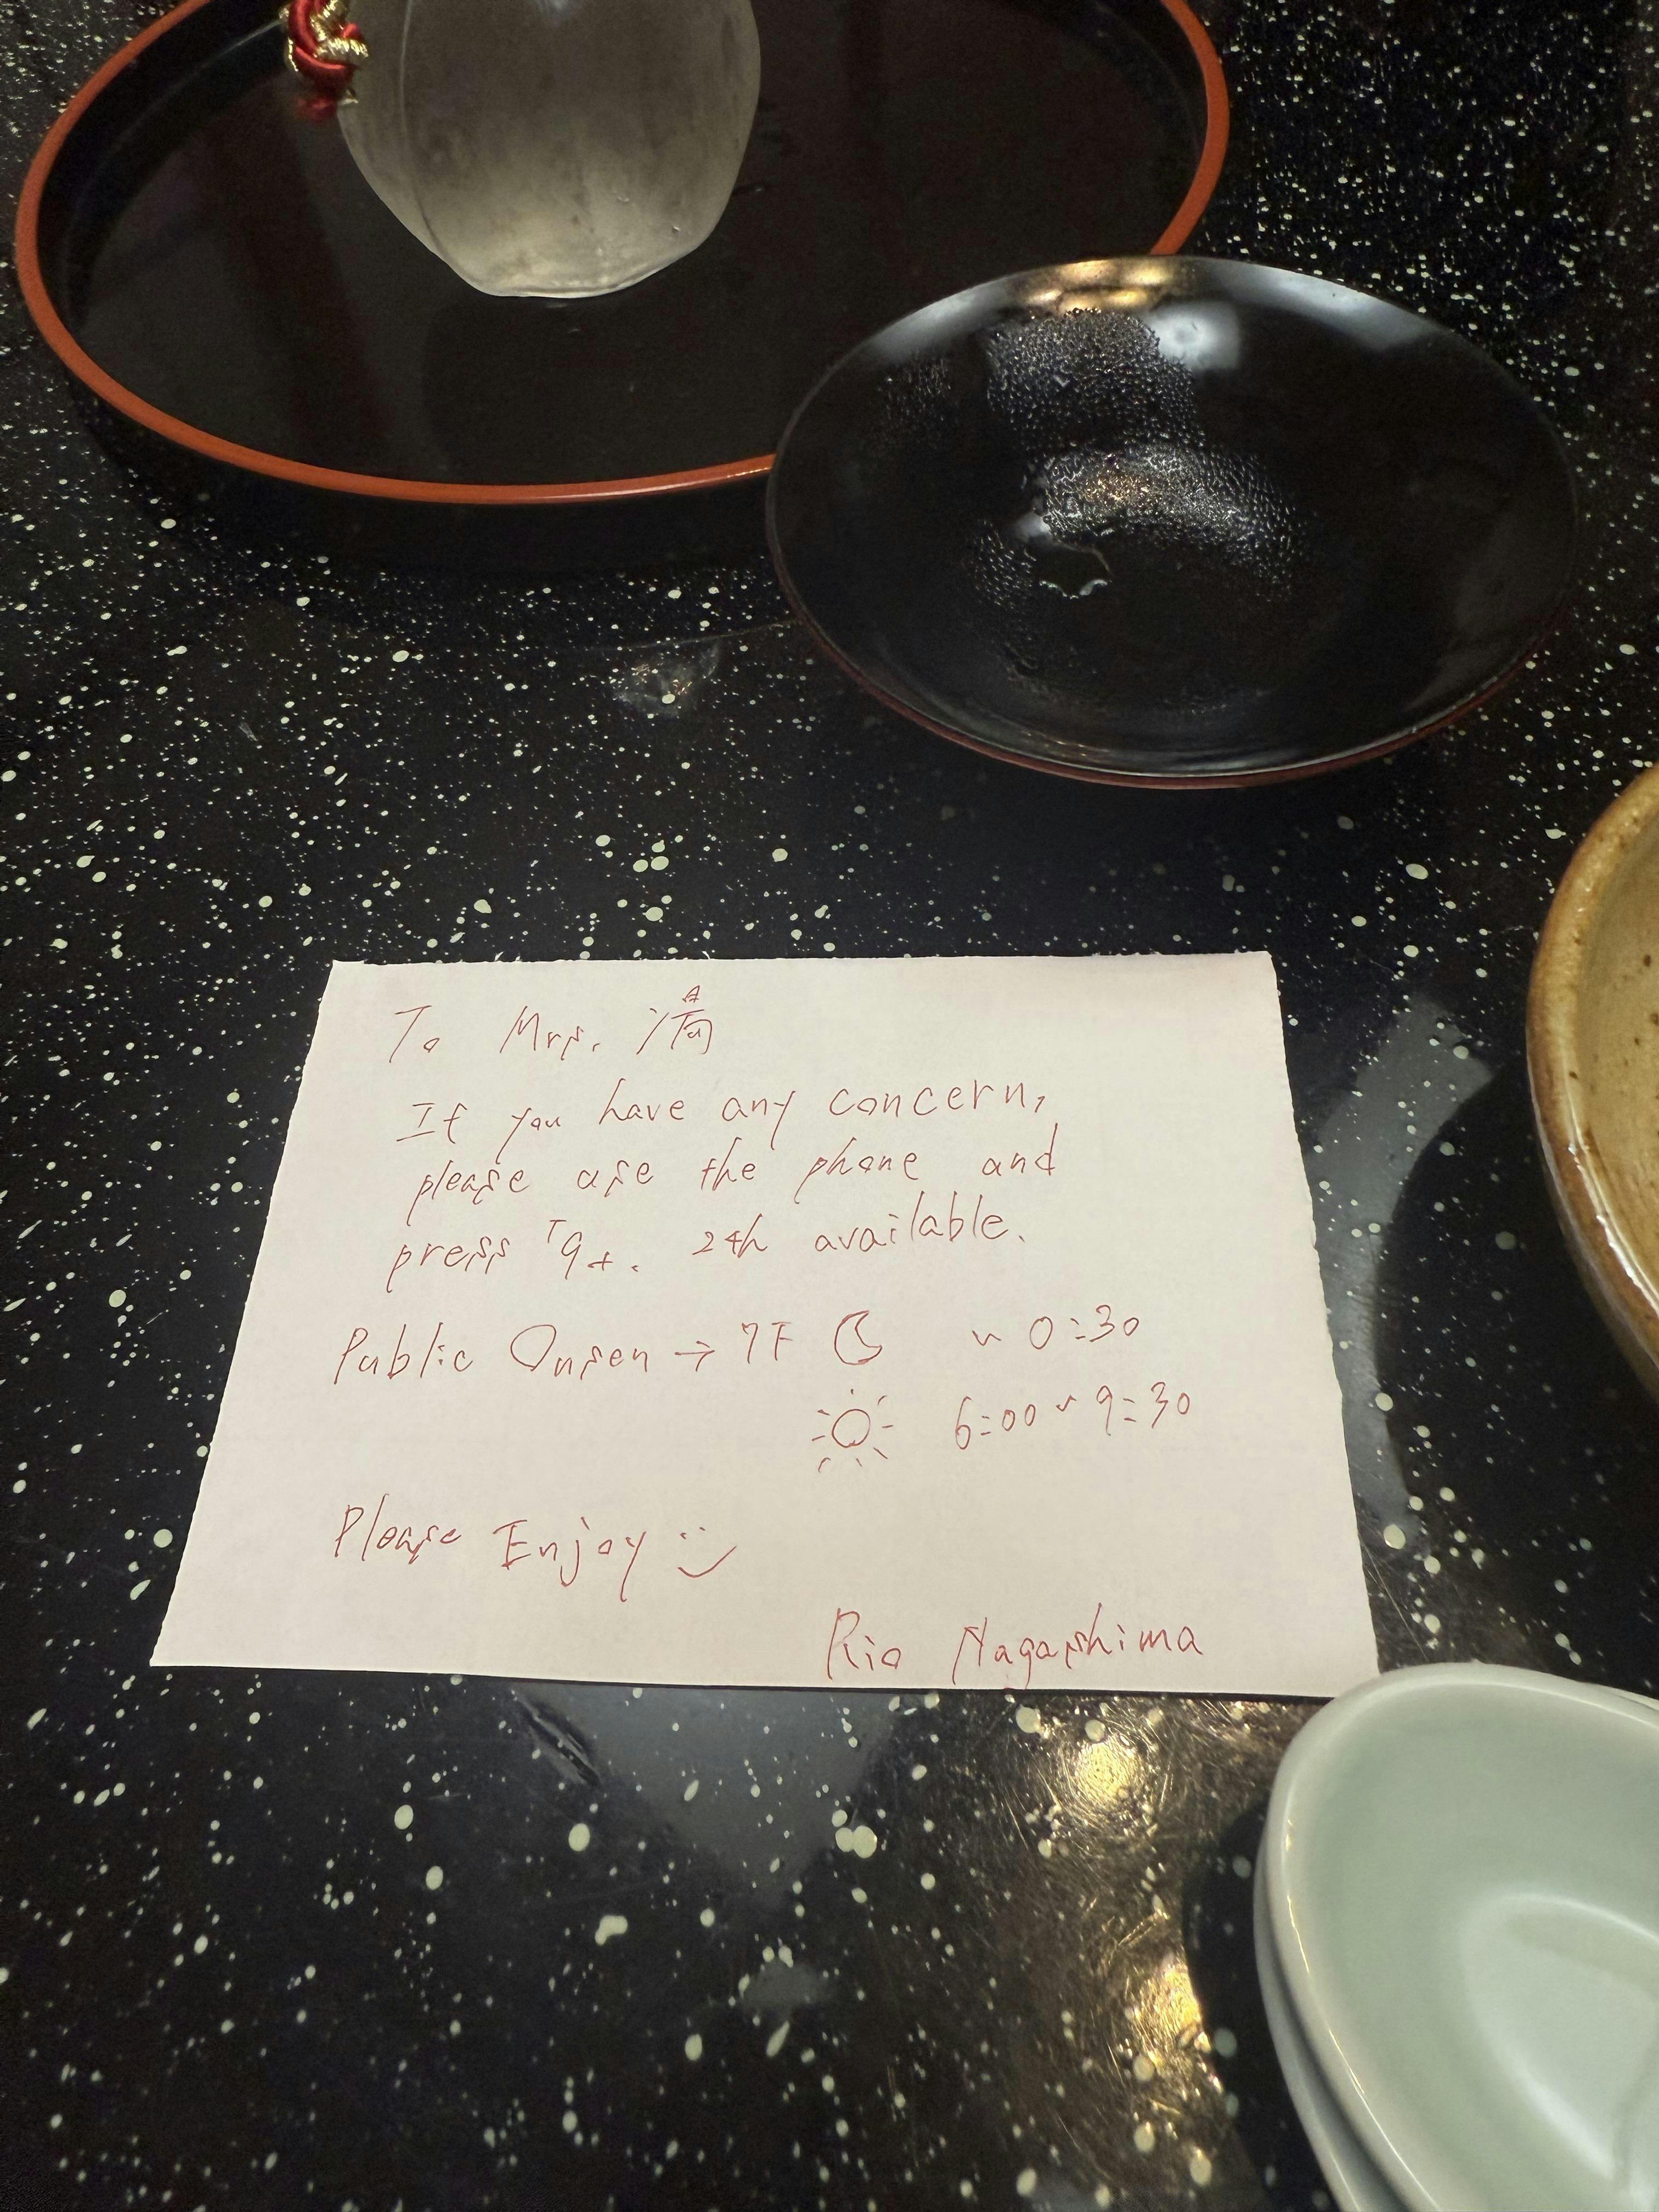 To Mrs.
If you have any concern,
please use the phone and
press 「9」. 24h available.
Public Onsen → 7F ~ 0:30
6:00 ~ 9:30
Please Enjoy
Rio Nagashima